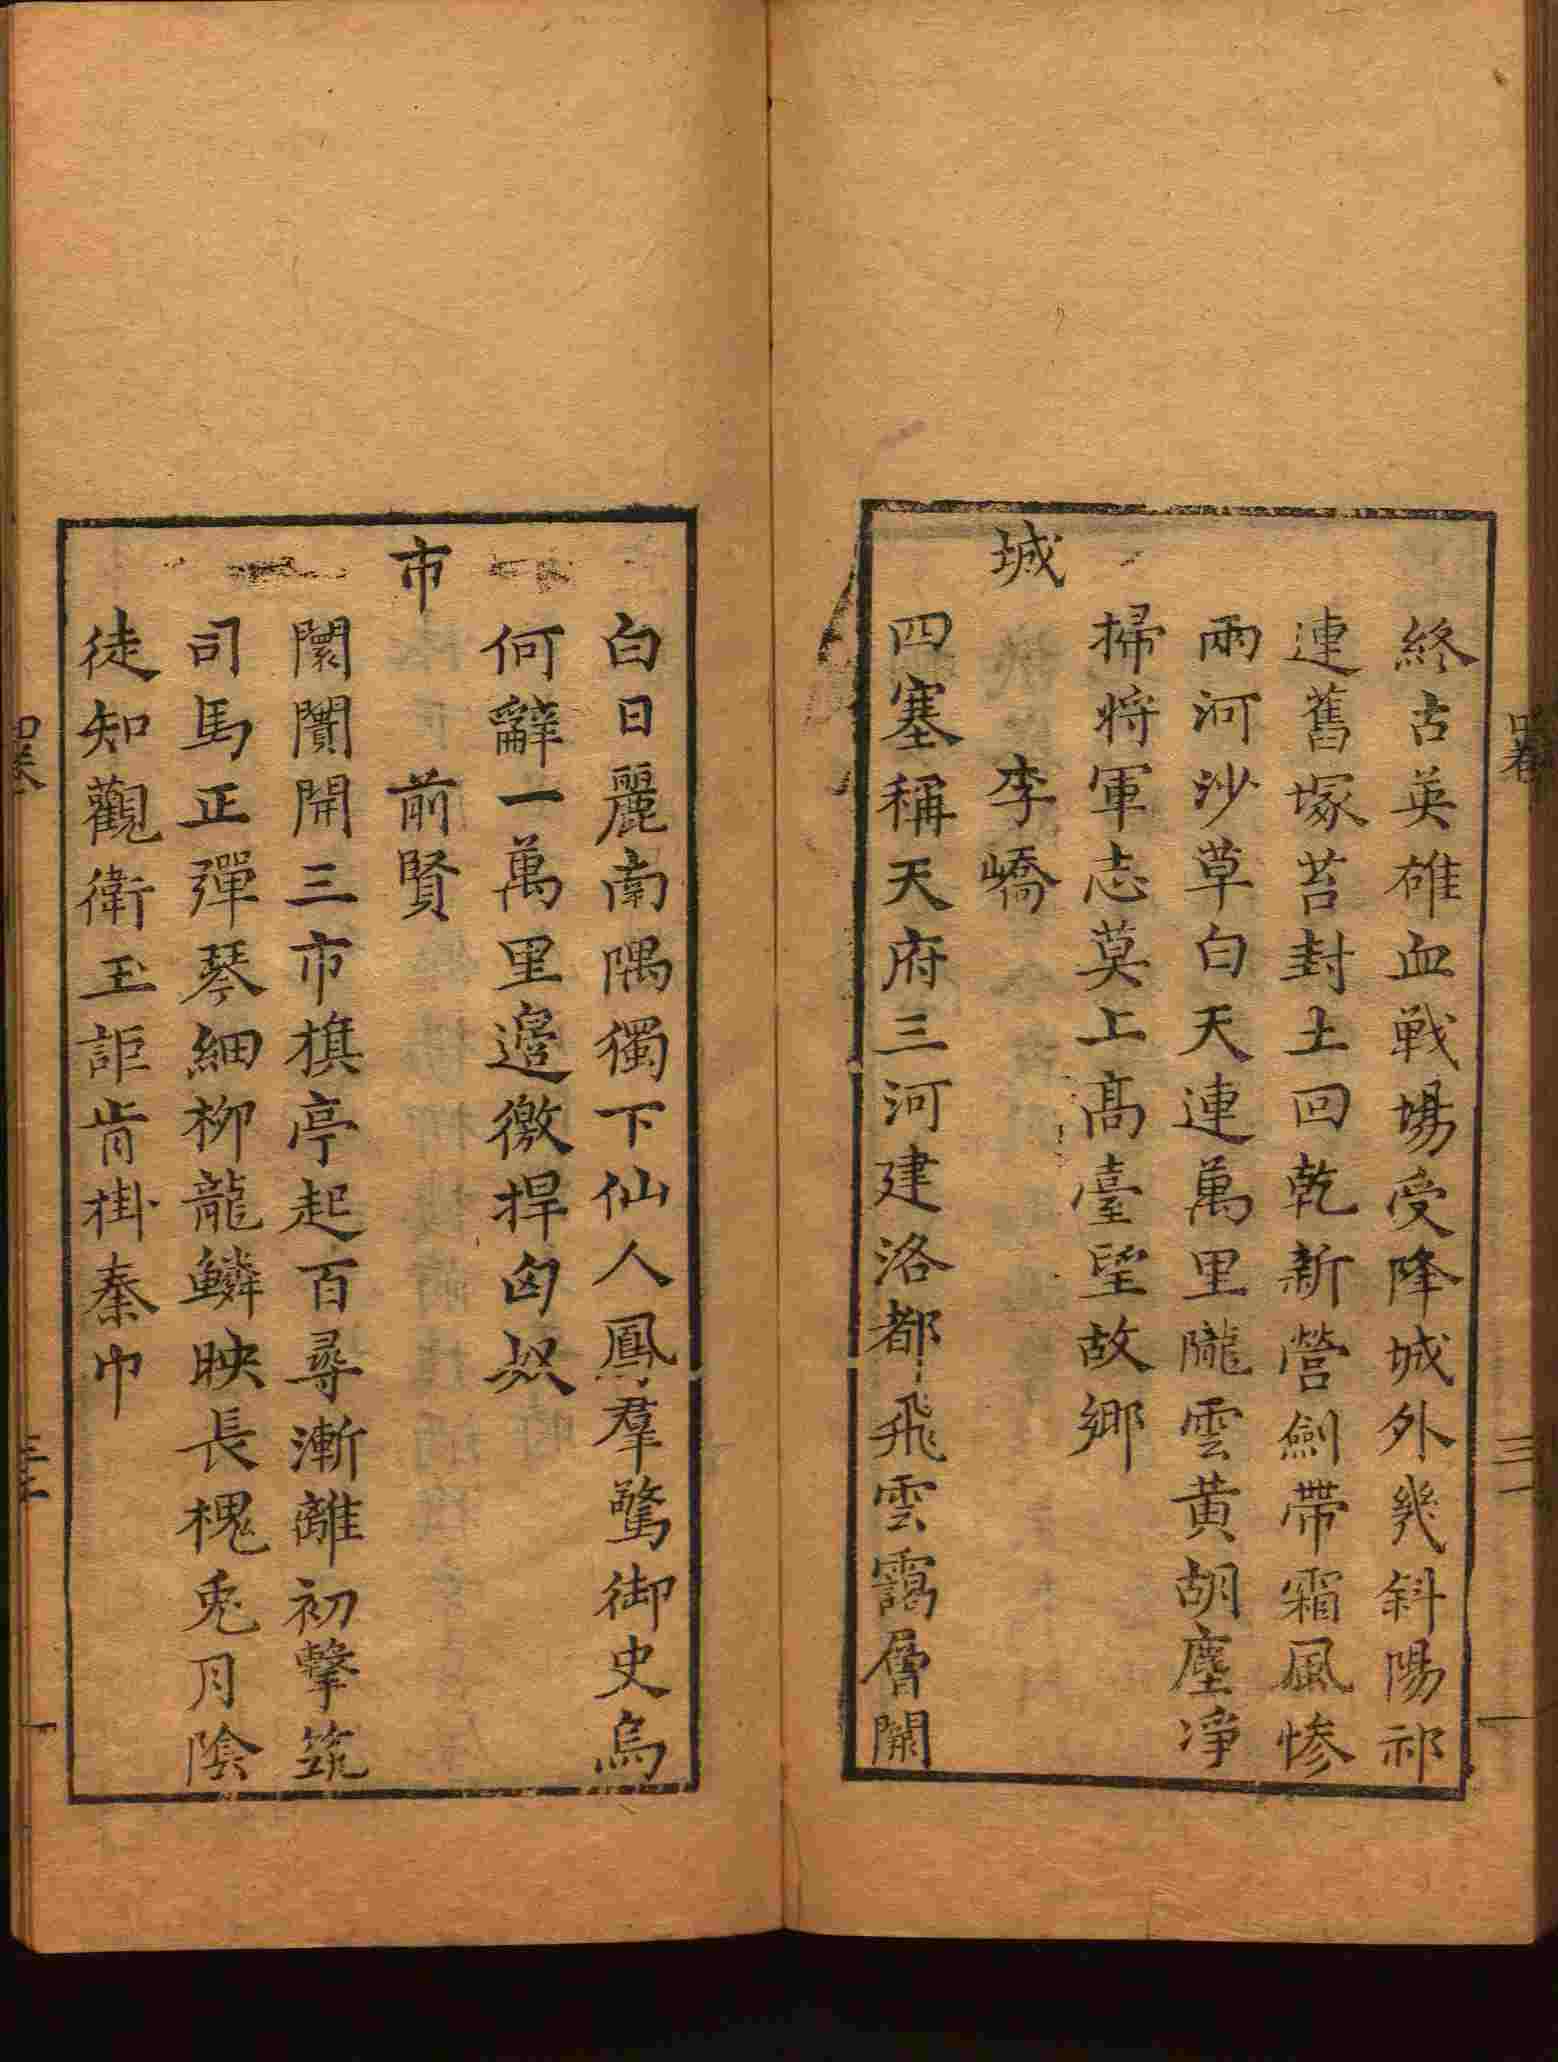 終古英雄血戦場受降城外幾斜陽祁
連舊塚苔封土回乾新營劍帶霜風惨
兩河沙草白天連萬里隴雲黄胡塵淨
掃將軍志莫上髙臺望故鄉
城
李嶠
四塞稱天府三河建洛都飛雲靄層闕
白日麗南隅獨下仙人鳳羣驚御史烏
何辭一萬里邉徼捍匈奴
市
前賢
闤闠開三市旗亭起百尋漸離初擊筑
司馬正彈琴細柳龍鱗映長槐兎月陰
徒知觀衛玉詎肯掛秦巾